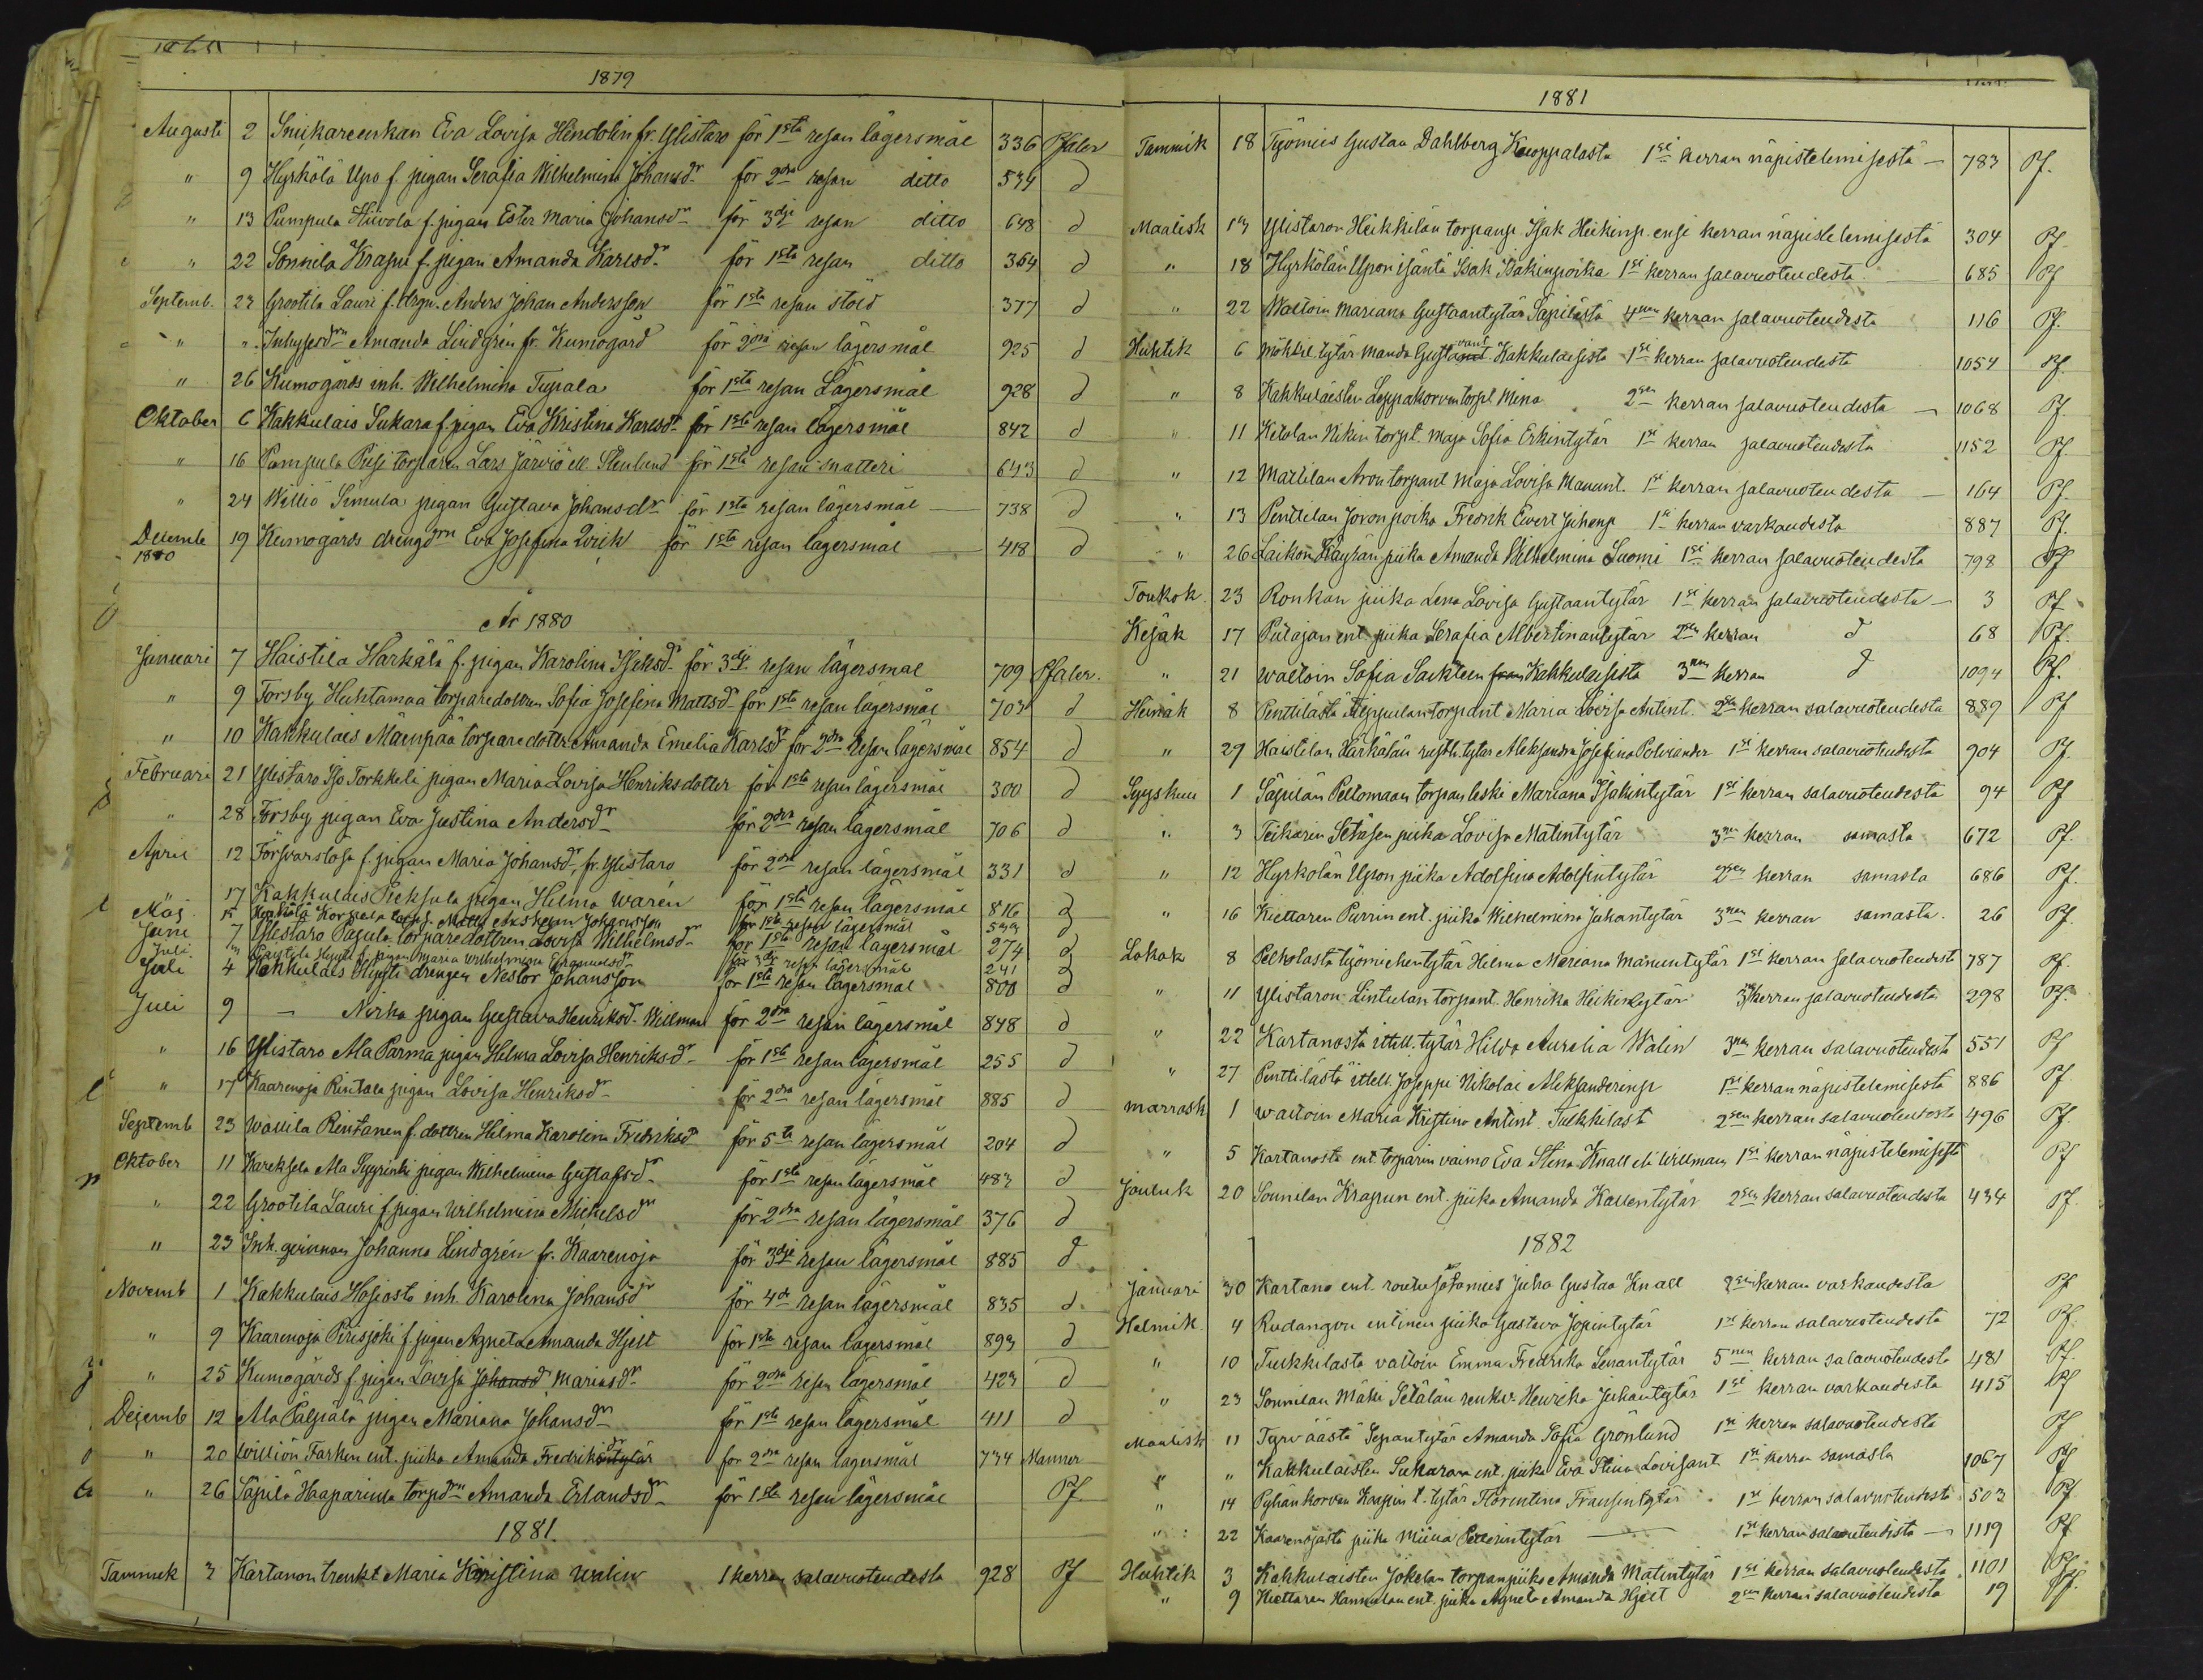 1879
Augusti 2 Snickareenkan Eva Lovisa Hindolin fr. Ylistaro för 1sta resan lägersmål 336 Pfaler
" 9 Hyrkölä Upo f. pigan Serafia Wilhelmina Johansdr för 2dra resan ditto 534 d
" 13 Pumpula Hiivola f. pigan Ester Maria Johansdr för 3dje resan ditto 648 d
" 22 Sonnila Krapu f. pigan Amanda Karlsdr för 1sta resan ditto 364 d
Septemb. 23 Grootila Lauri f. drgn. Anders Johan Andersson för 1sta resan stöld 377 d
" " Inhysesdrn Amanda Lindgrén fr. Kumogård för 2dra resan lägersmål 925 d
" 26 Kumogårds inh. Wilhelmina Tupala för 1sta resan Lägersmål 928 d
Oktober 6 Kakkulais Sukara f. pigan Eva Kristina Karlsdr för 1sta resan lägersmål 842 d
" 16 Pumpula torparen Lars Järviö ell. Stenlund för 1sta resan snatteri 643 d
" 24 Williö Simula pigan Gustava Johansdr för 1sta resan lägersmål 738 d
Decemb 19 Kumogårds drengdrn Eva Josefina Qvick för 1sta resan lägersmål 418 d
1880
År 1880
Januari 7 Haistila Härkälä f. pigan Karolina Isaksdr för 3dje resan lägersmål 709 Pfaler.
" 9 Forsby Huhtamaa torparedottren Sofia Josefina Mattsdr för 1sta resan lägersmål 703 d
" 10 Kakkulais Mäenpää torparedottr Amanda Emelia Karlsdr för 2dra resan lägersmål 854 d
Februari 21 Ylistaro Iso Torkkeli pigan Maria Lovisa Henriksdotter för 1sta resan lägersmål 300 d
" 28 Forsby pigan Eva Justina Andersdr för 2dra resan lägersmål 706 d
April 12 Försvarslösa f. pigan Maria Johansdr, fr. Ylistaro för 2dra resan lägersmål 331 d
Maj 17 Kakkulais Pieksula pigan Helma Warén för 1sta resan lägersmål 816 d
för 1sta resan lägersmål d
Juni 7 Ylistaro Pajula torparedottren Lovisa Wilhelmsdr för 1sta resan lägersmål 274 d
Juli pigan Maria Wilhelmina Emanuelsdr för 3dje resan lägersmål 241 d
Juli 4 Kakkulais Hyyti drengen Nestor Johansson för 1sta resan lägersmål 800 d
Juli 9 — Norha pigan Gustava Henriksdr Willman för 2dra resan lägersmål 848 d
" 16 Ylistaro Ala Parma pigan Helena Lovisa Henriksdr för 1sta resan lägersmål 255 d
" 17 Kaarenoja Rintala pigan Lovisa Henriksdr för 2dra resan lägersmål 885 d
Septemb 23 Wallila Rintanen f. dottren Hilma Karolina Fredriksdr för 5te resan lägersmål 204 d
Oktober 11 Kareksela Ala Syyrinki pigan Wilhelmina Gustafsdr för 1sta resan lägersmål 483 d
" 22 Grootila Lauri f. pigan Wilhelmina Mickelsdr för 2dra resan lägersmål 376 d
" 23 Inh. qvinnan Johanna Lindgrén fr. Kaarenoja för 3dje resan lägersmål 885 d
Novemb 1 Kakkulais Hosiasto inh. Karolina Johansdr för 4de resan lägersmål 835 d.
" 9 Kaarenoja Piirisjoki f. pigan Agneta Amanda Hjelt för 1sta resan lägersmål 893 d
" 25 Kumogårds f. pigan Lovisa Johansd Mariasdr för 2dra resan lägersmål 423 d
Dejemb 12 Ala Pälpälä pigan Mariana Johansdr för 1sta resan lägersmål 411 d
" 20 Williön Farkin ent. piika Amanda Fredriksdr för 2dra resan lägersmål 734 Manner
" 26 Säpilä Haaparinta torpdrn Amanda Erlandsdr för 1sta resan lägersmål Pf
1881.
Tammik 3 Kartanon trenkt Maria Kristina Walin 1 kerran salavuoteudesta 928 Pf
1881
Tammik 18 Työmies Gustaa Dahlberg Kuoppalasta 1si kerran näpistelemisestä — 783 Pf.
Maalisk 14 Ylistaron Heikkilän torpanp. Isak Heikinp. ensi kerran näpistelemisestä 304 Pf
" 18 Hyrkölän Upon isäntä Isak Isakinpoika 1si kerran salavuoteudesta 685 Pf
" 22 Waltoin Mariana Gustaantytär Säpilästä 4nen kerran salavuoteudesta 116 Pf.
Huhtik 6 Mökkil. tytär Manda Gustavant. Kakkulaisista 1si kerran salavuoteudesta 1054 Pf.
" 8 Kakkulaisten Leppäkorven torpt. Mina 2sen kerran salavuoteudesta — 1068 Pf.
" 11 Ketolan Nikin torpt. Maja Sofia Erkintytär 1si kerran salavuoteudesta 1152 Pf
" 12 Mattilan Aron torpant Maja Lovisa Manunt. 1si kerran salavuoteudesta — 164 Pf.
" 13 Penttilän Joron poika Fredrik Evert Juhanp 1si kerran varkaudesta 887 Pf.
" 26 Laikon Käyrän piika Amanda Wilhelmina Suomi 1si kerran salavuoteudesta 798 Pf
Toukok. 23 Ronkan piika Lena Lovisa Gustaantytär 1si kerran salavuoteudesta — 3 Pf
Kesäk 17 Piilajan ent. piika Serafia Albertinantytär 2sen kerran d 68 Pf.
" 21 Waltoin Sofia Saikteen Kakkulaisista 3nen kerran d 1094 Pf.
Heinäk 8 Penttilästä torpant Maria Lovisa Antint. 2sen kerran salavuoteudesta 889 Pf
" 29 Haistilan Härkälän rusth. tytär Aleksandra Josefina Polviander 1si kerran salavuoteudesta 904 Pf.
Syyskuu 1 Säpilän Peltomaan torpan leski Mariana Isakintytär 1si kerran salavuoteudesta 94 Pf
" 3 Teikarin Setäsen piika Lovisa Matintytär 3nen kerran samasta 672 Pf.
" 12 Hyrkölän Upon piika Adolfina Adolfintytär 2sen kerran samasta 686 Pf.
" 16 Kiettaren Purrin ent. piika Wilhelmina Juhantytär 3nen kerran samasta. 26 Pf.
Lokak 8 Pelholasta työmiehentytär Helma Mariana Manuntytär 1si kerran salavuoteudesta 787 Pf.
" 11 Ylistaron Lintulan torpant. Henrika Heikintytär 3nen kerran salavuoteudesta 298 Pf.
" 22 Kartanosta ittell. tytär Hilda Aurelia Walin 3nen kerran salavuoteudesta 551 Pf
" 27 Penttilästä ittell. Joseppi Nikolai Aleksanderinp 1si kerran näpistelemisestä 886 Pf
Marrask 1 Waltoin Maria Kristina Antint. Tulkkilast 2sen kerran salavuoteudesta 496 Pf.
" 5 Kartanosta ent. torparin vaimo Eva Stina Knall eli Willman 1si kerran näpistelemisestä Pf
Jouluk 20 Sonnilan Krapun ent. piika Amanda Kallentytär 2sen kerran salavuoteudesta 434 Pf.
1882
Januari 30 Kartano ent. Juha Gustaa Knall 2sen kerran varkaudesta Pf
Helmik. 4 Rudangon entinen piika Gustava Josepintytär 1si kerran salavuoteudesta 72 Pf.
" 10 Tulkkilasta valtoin Emma Fredrika Leenantytär 5nen kerran salavuoteudesta 481 Pf.
" 23 Sonnilan Mäki Setälän renkiv. Henrika Juhantytär 1si kerran varkaudesta 415 Pf
Maalisk 11 Tyrväästä Sepäntytär Amanda Sofia Grönlund 1si kerran salavuoteudesta Pf
" " Kakkulaisten Sukaran ent. piika Eva Stina Lovisant 1si kerran samasta 1067 Pf
" 14 Pyhänkorvan Knapin t. tytär Florentina Fransintytär 1si kerran salavuoteudesta 503 Pf
" 22 Kaarenojasta piika Miina — 1si kerran salavuoteudesta — 1119 Pf
Huhtik 3 Kakkulaisten Jokelan torpanpiika Amanda Matintytär 1si kerran salavuoteudesta 1101 Pf.
" 9 Kiettaren Hannulan ent. piika Agneta Amanda Hjelt 2sen kerran salavuoteudesta 19 Pf.